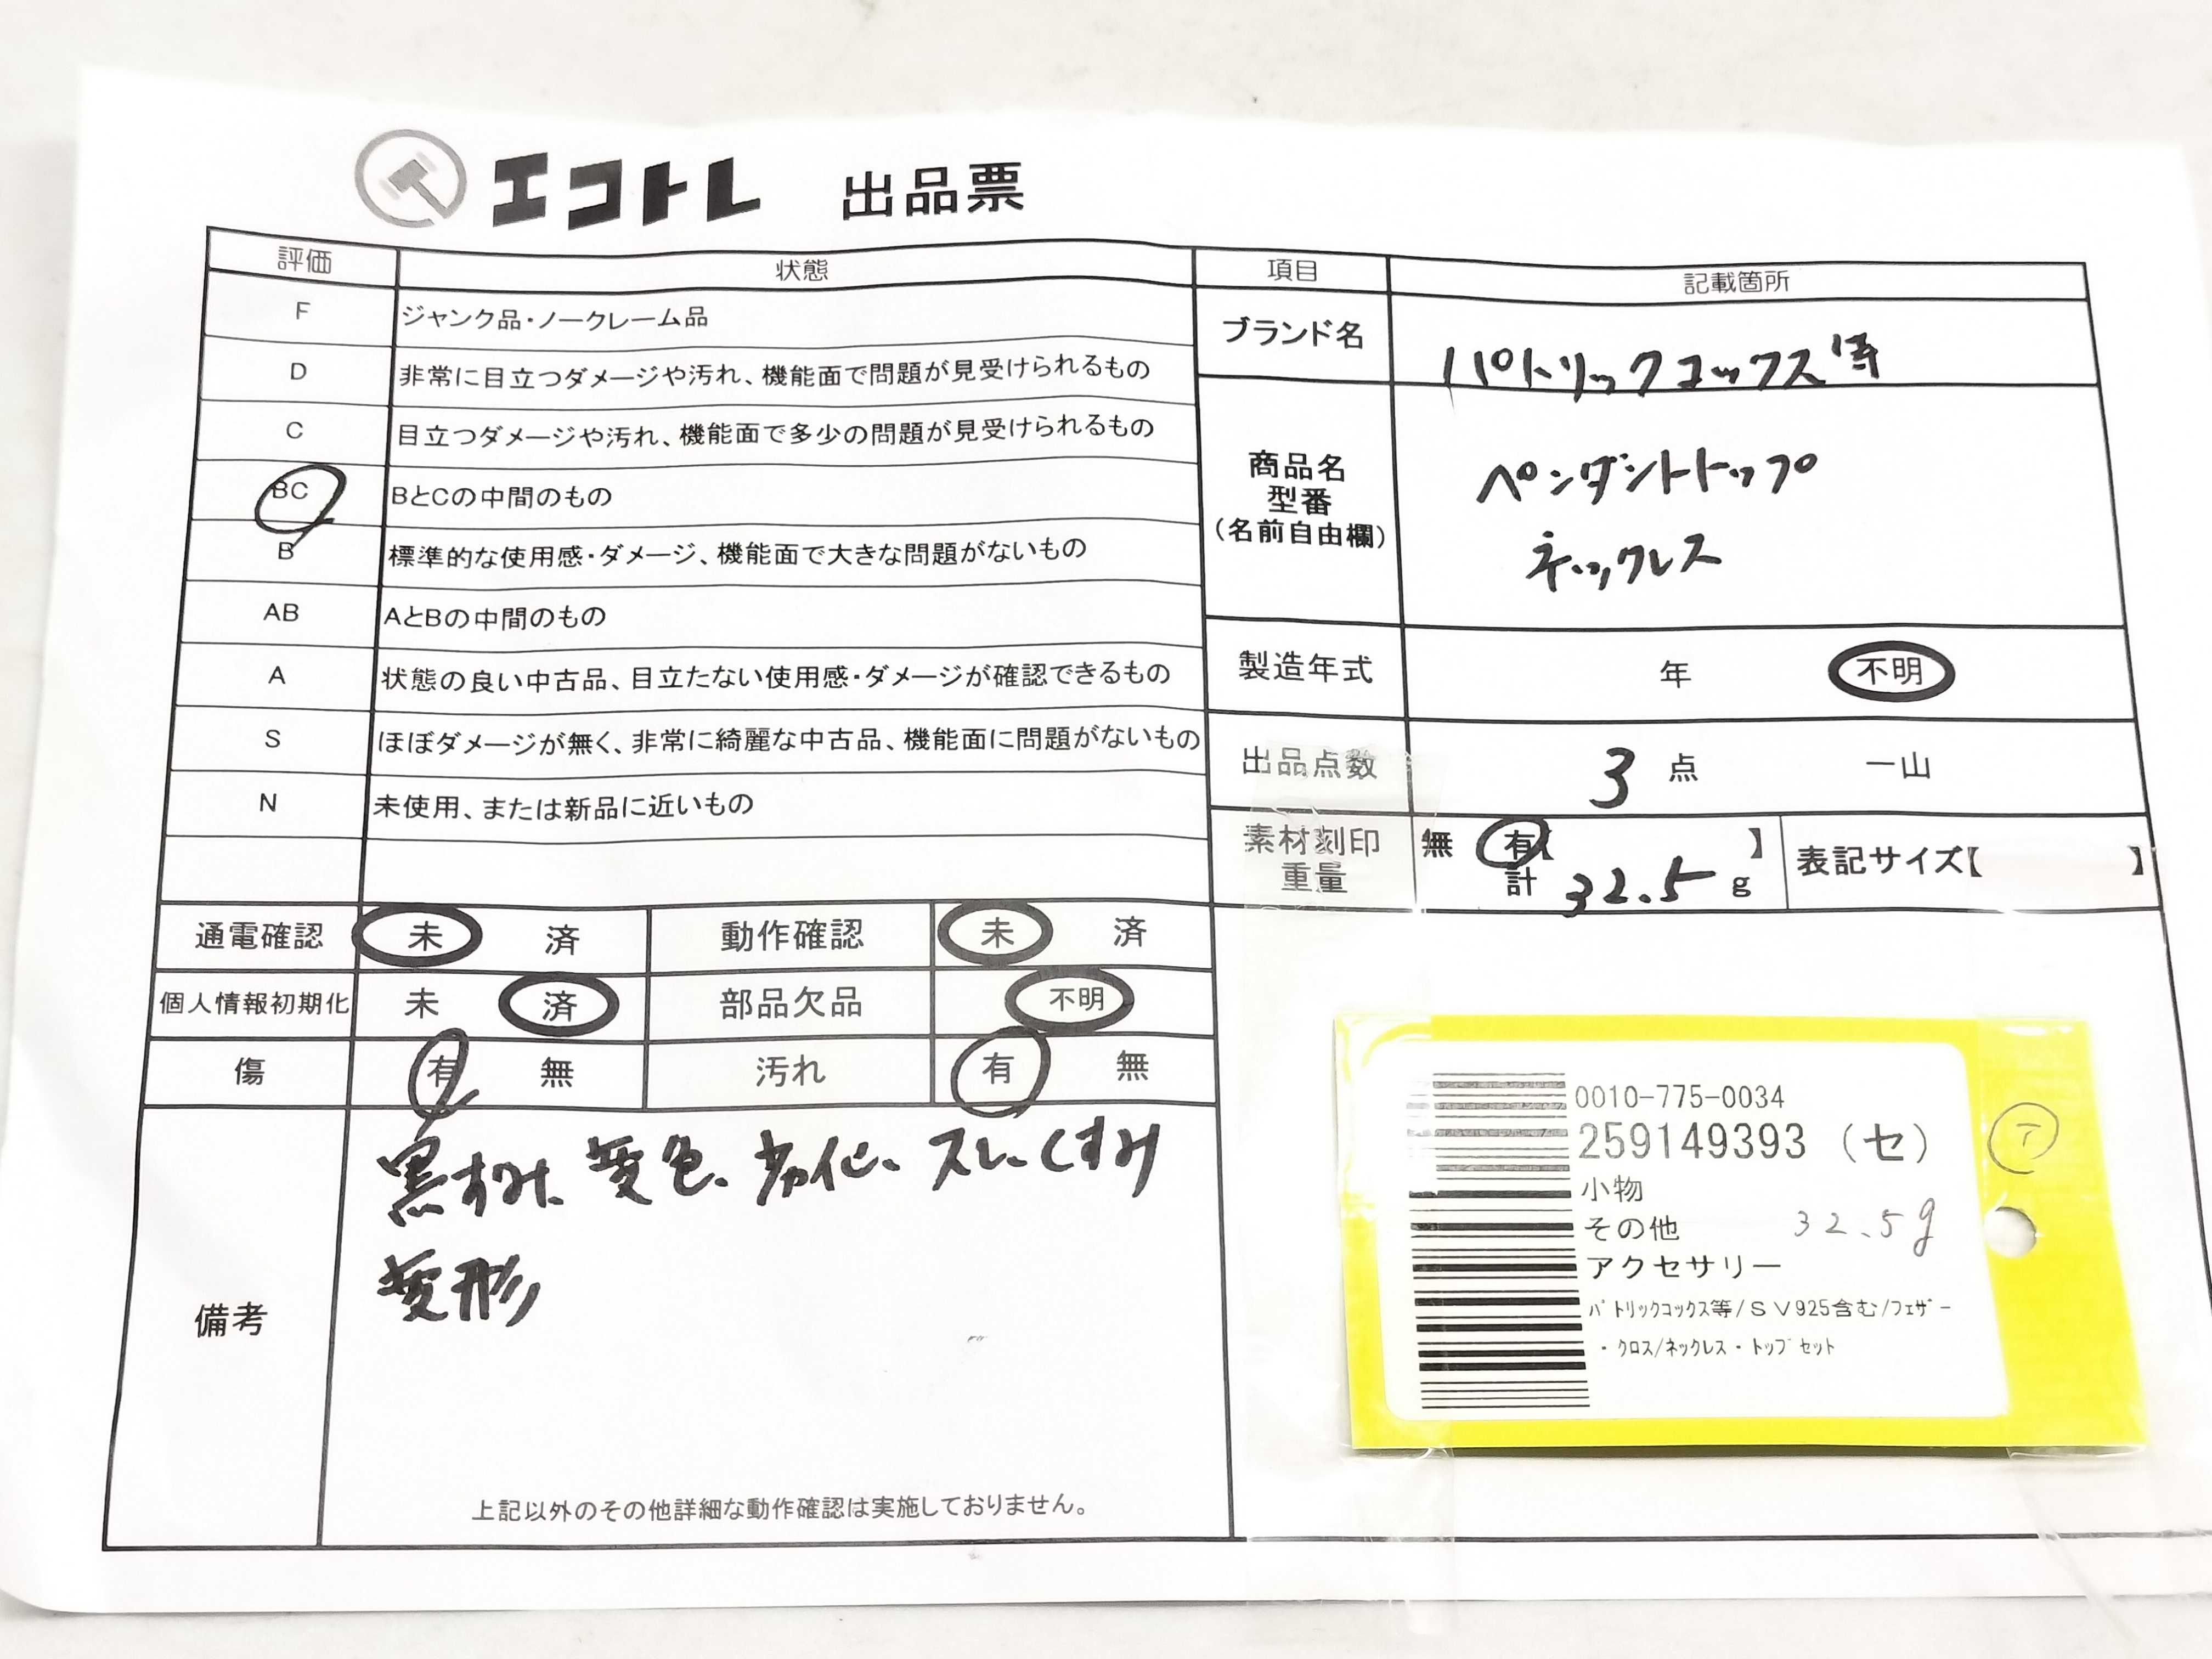 エコトレ 出品票
評価 状態 項目 記載箇所
F ジャンク品・ノークレーム品
ブランド名 パトリックコックス等
D 非常に目立つダメージや汚れ、機能面で問題が見受けられるもの
C 目立つダメージや汚れ、機能面で多少の問題が見受けられるもの
商品名
型番
(名前自由欄)
ペンダントトップ
ネックレス
BC BとCの中間のもの
B 標準的な使用感・ダメージ、機能面で大きな問題がないもの
AB AとBの中間のもの
A 状態の良い中古品、目立たない使用感・ダメージが確認できるもの
製造年式 年 不明
S ほぼダメージが無く、非常に綺麗な中古品、機能面に問題がないもの
出品点数 3 点 一山
N 未使用、または新品に近いもの
素材刻印 無 有【 】 表記サイズ【 】
重量 計 32.5 g
通電確認 未 済 動作確認 未 済
個人情報初期化 未 済 部品欠品 不明
傷 有 無 汚れ 有 無
備考
黒ずみ、変色、劣化、スレ、くすみ
変形
上記以外のその他詳細な動作確認は実施しておりません。
0010-775-0034
259149393 (セ)
小物
その他 32.5g
アクセサリー
ﾊﾟﾄﾘｯｸｺｯｸｽ等/ＳＶ925含む/ﾌｪｻﾞｰ
・ｸﾛｽ/ﾈｯｸﾚｽ・ﾄｯﾌﾟｾｯﾄ